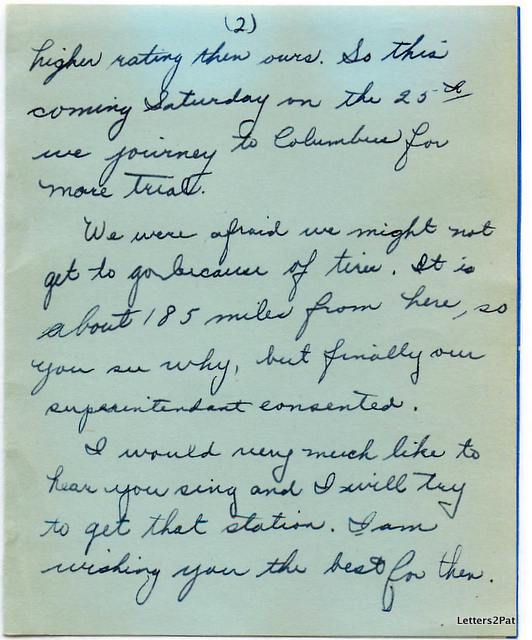 (2)
higher rating then ours. So this
coming Saturday on the 25th
we journey to Columbus for
more trials.
We were afraid we might not
get to go because of tires. It is
about 185 miles from here, so
you see why, but finally our
superintendant consented.
I would very much like to
hear you sing and I will try
to get that station. I am
wishing you the best for then.
Letters2Pat